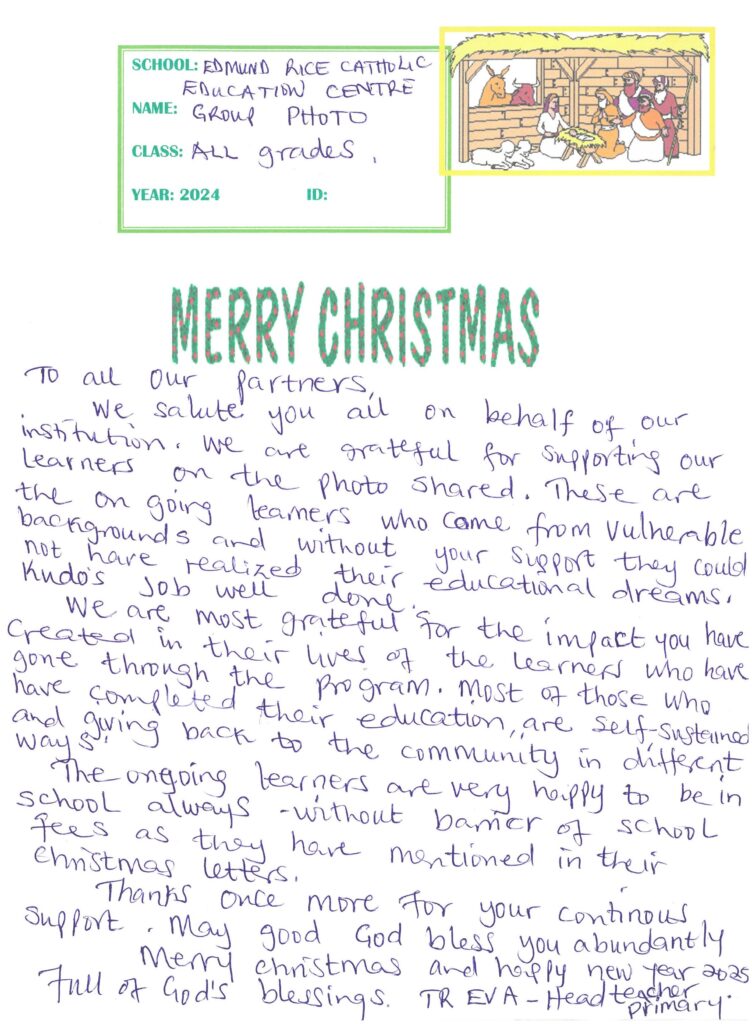 SCHOOL: EDMUND RICE CATHOLIC
EDUCATION CENTRE
NAME: GROUP PHOTO
CLASS: ALL grades.
YEAR: 2024 ID:
MERRY CHRISTMAS
To all our partners,
We salute you all on behalf of our
institution. We are grateful for supporting our
learners on the photo shared. These are
the on going learners who come from vulnerable
backgrounds and without your support they could
not have realized their educational dreams.
Kudo's Job well done.
We are most grateful for the impact you have
created in their lives of the learners who have
gone through the program. Most of those who
have completed their education, are self-sustained
and giving back to the community in different
ways.
The ongoing learners are very happy to be in
school always - without barrier of school
fees as they have mentioned in their
christmas letters.
Thanks once more for your continous
support. May good God bless you abundantly
Merry christmas and happy new year 2025
Full of God's blessings. TR EVA - Headteacher
primary.